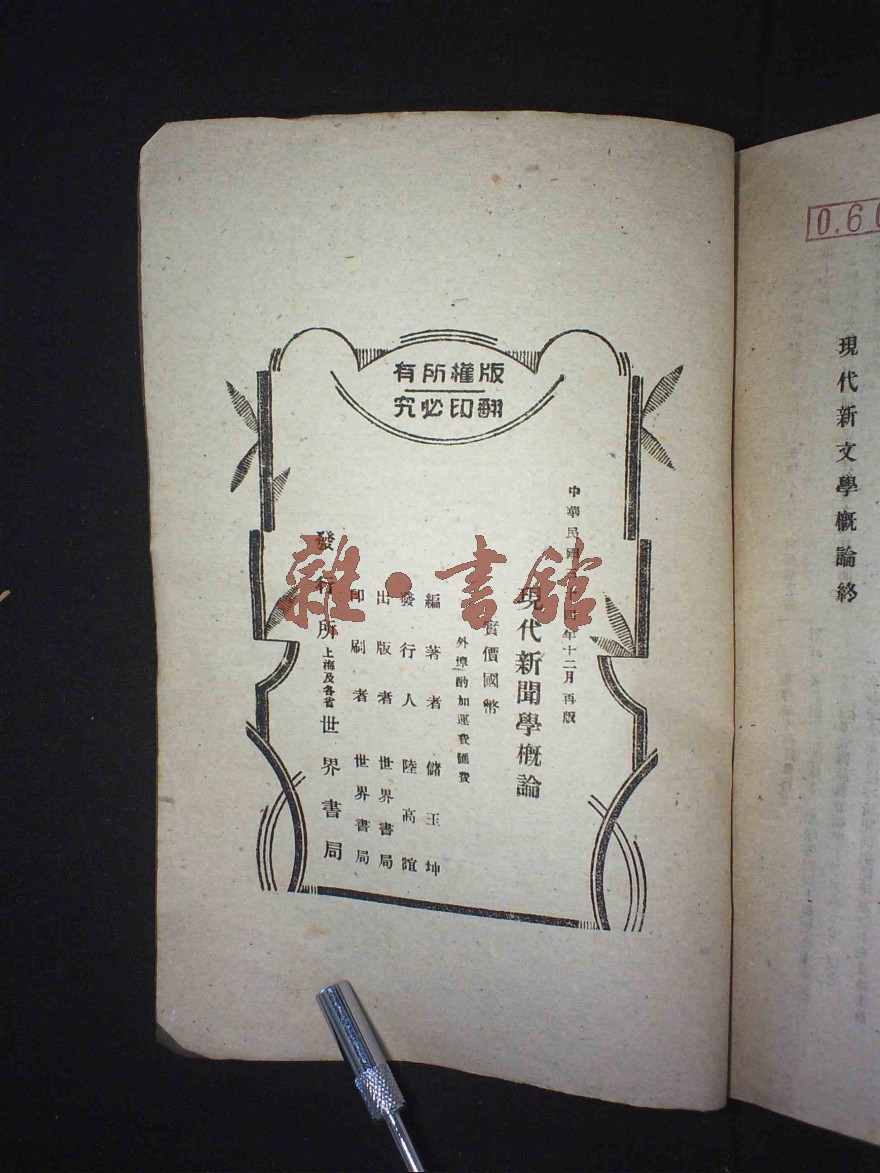 0.6
現代新文學概論終
版權所有
翻印必究
中華民國 年十二月再版
現代新聞學概論
實價國幣
外埠酌加運費匯費
編著者 儲玉坤
發行人 陸高誼
出版者 世界書局
印刷者 世界書局
發行所 上海及各省 世界書局
雜·書館